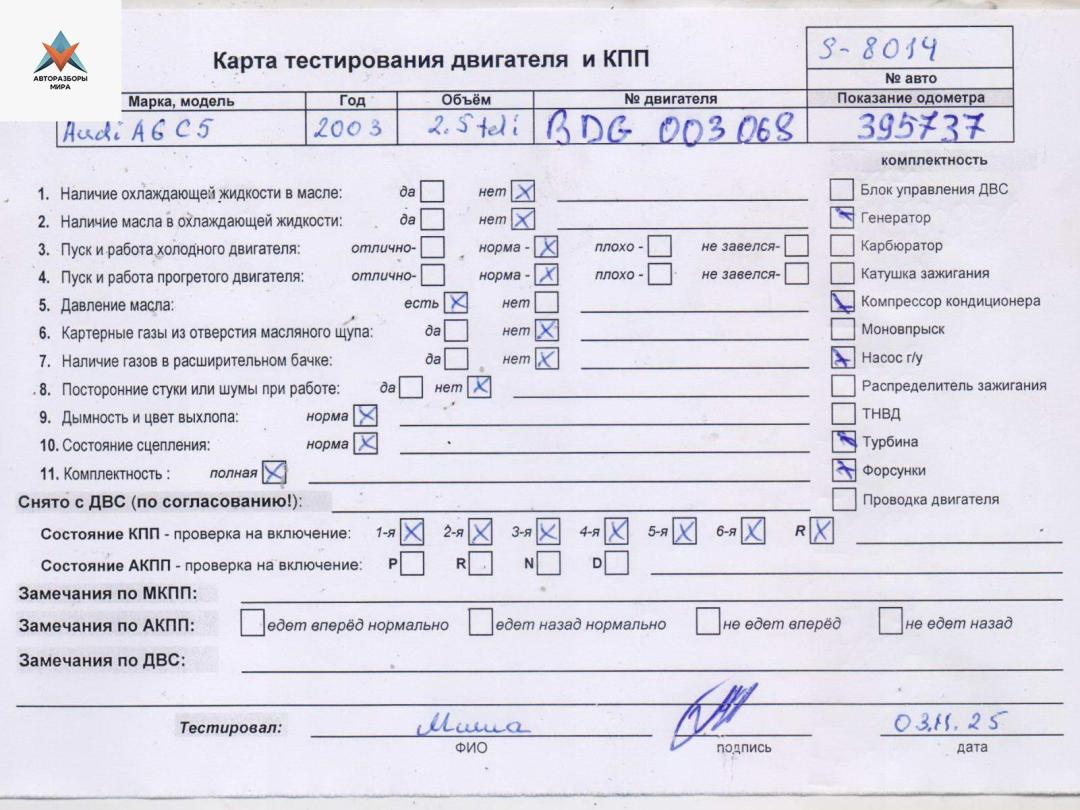 АВТОРАЗБОРЫ
МИРА
Карта тестирования двигателя и КПП
S-8014
№ авто
Марка, модель Год Объём № двигателя Показание одометра
Audi A6 C5 2003 2.5 tdi BDG 003068 395737
комплектность
1. Наличие охлаждающей жидкости в масле: да нет
Блок управления ДВС
2. Наличие масла в охлаждающей жидкости: да нет
Генератор
3. Пуск и работа холодного двигателя: отлично- норма - плохо - не завелся-
Карбюратор
4. Пуск и работа прогретого двигателя: отлично- норма - плохо - не завелся-
Катушка зажигания
5. Давление масла: есть нет
Компрессор кондиционера
6. Картерные газы из отверстия масляного щупа: да нет
Моновпрыск
7. Наличие газов в расширительном бачке: да нет
Насос г/у
8. Посторонние стуки или шумы при работе: да нет
Распределитель зажигания
9. Дымность и цвет выхлопа: норма
ТНВД
10. Состояние сцепления: норма
Турбина
11. Комплектность : полная
Форсунки
Снято с ДВС (по согласованию!):
Проводка двигателя
Состояние КПП - проверка на включение: 1-я 2-я 3-я 4-я 5-я 6-я R
Состояние АКПП - проверка на включение: P R N D
Замечания по МКПП:
Замечания по АКПП: едет вперёд нормально едет назад нормально не едет вперёд не едет назад
Замечания по ДВС:
Тестировал: Миша 03.11.25
ФИО подпись дата